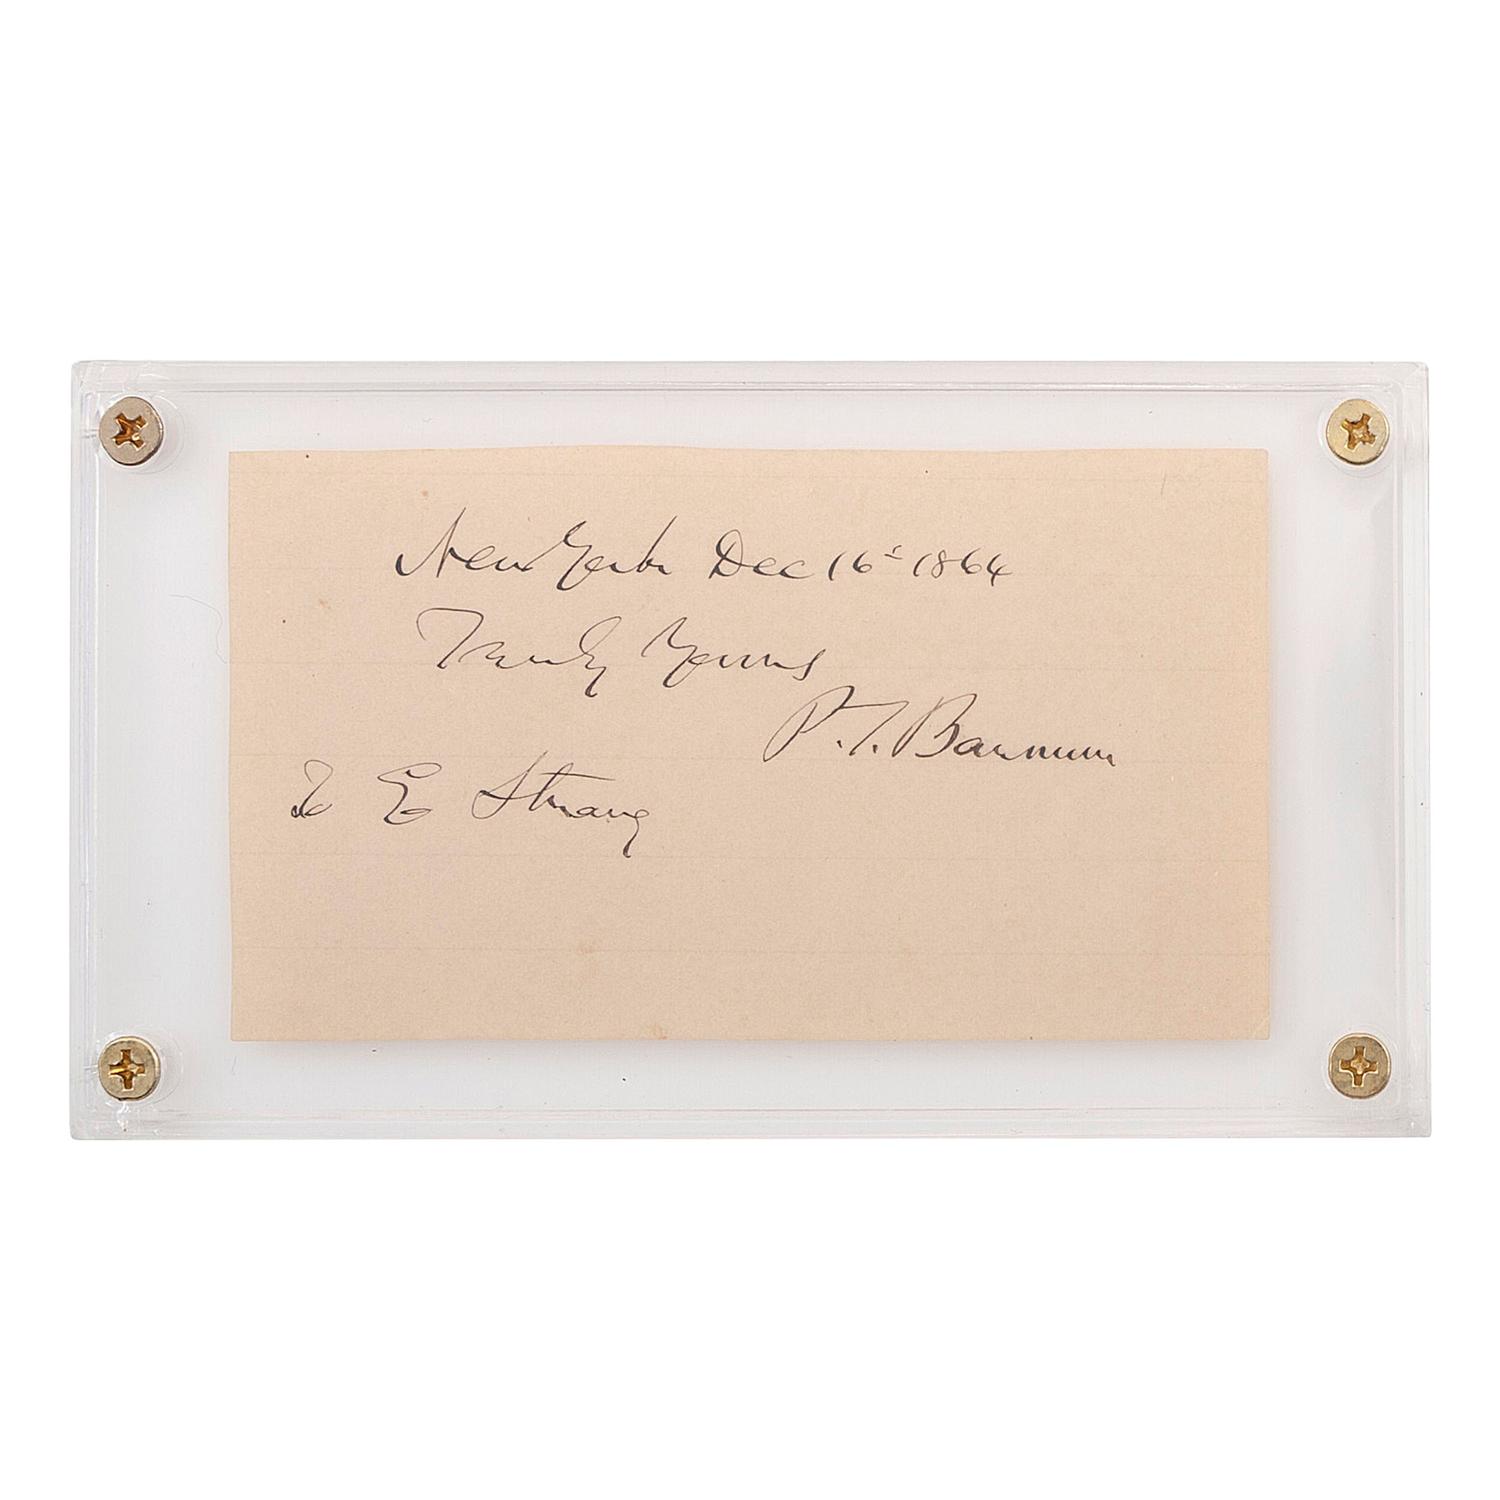 New York Dec 16 1864
Truly Yours
P. T. Barnum
To E Strang